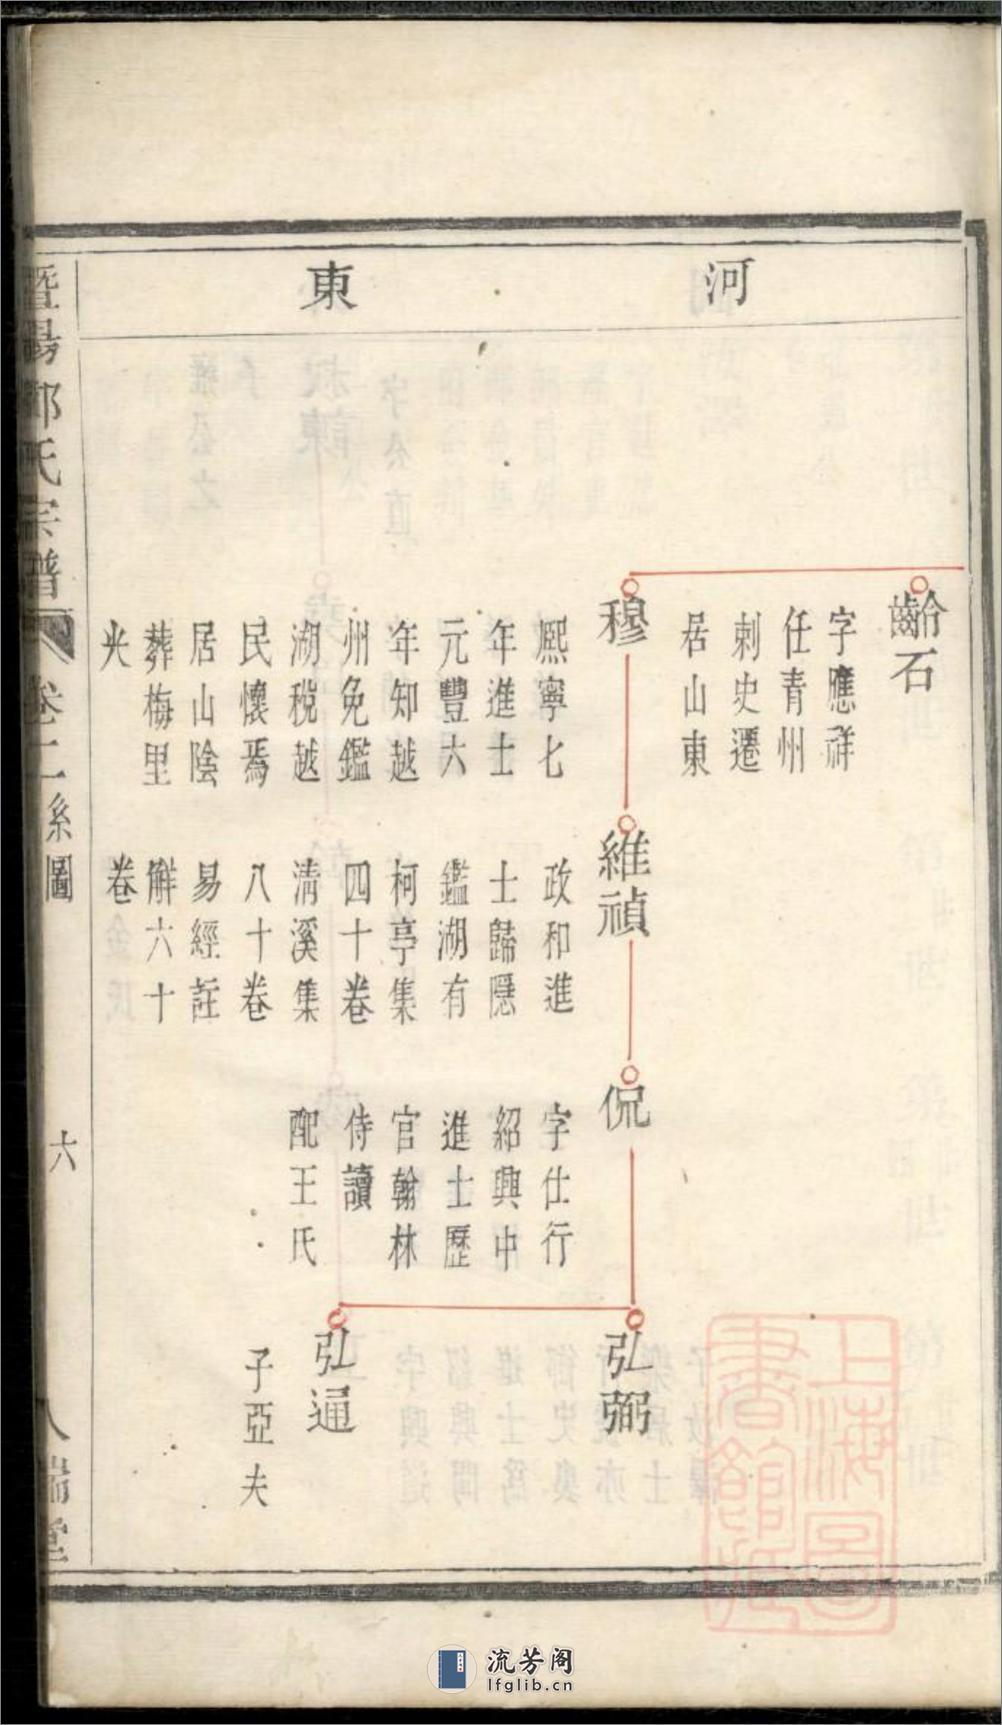 河東
齡石
字應祥
任青州
刺史遷
居山東
穆
熙寧七
年進士
元豐六
年知越
州免鑑
湖稅越
民懷焉
居山陰
葬梅里
尖
維禎
政和進
士歸隱
鑑湖有
柯亭集
四十卷
清溪集
八十卷
易經註
解六十
卷
侃
字仕行
紹興中
進士歷
官翰林
侍讀
配王氏
弘弼
弘通
子亞夫
暨陽邵氏宗譜
卷二系圖
六
人瑞堂
上海圖書館藏
流芳阁
lfglib.cn